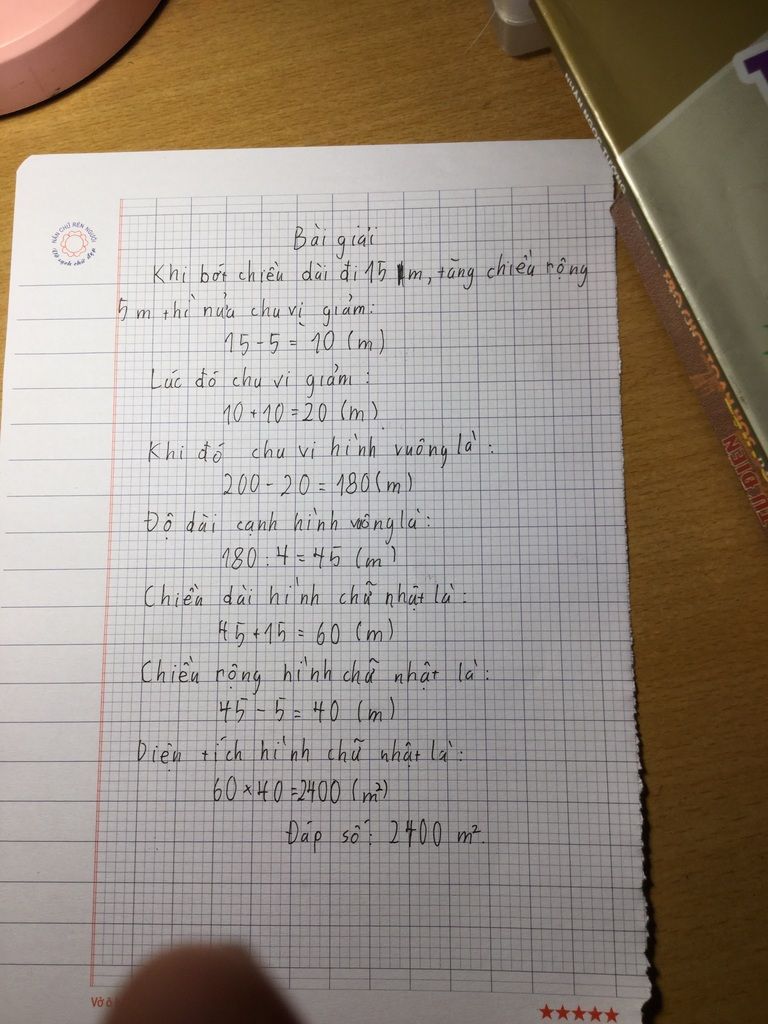 NẮN CHỮ RÈN NGƯỜI
NHÂN NGỌC TƯỜNG
TỪ ĐIỂN
Bài giải
Khi bớt chiều dài đi 15 m, tăng chiều rộng
5 m thì nửa chu vi giảm:
15 - 5 = 10 (m)
Lúc đó chu vi giảm:
10 + 10 = 20 (m)
Khi đó chu vi hình vuông là:
200 - 20 = 180 (m)
Độ dài cạnh hình vuông là:
180 : 4 = 45 (m)
Chiều dài hình chữ nhật là:
45 + 15 = 60 (m)
Chiều rộng hình chữ nhật là:
45 - 5 = 40 (m)
Diện tích hình chữ nhật là:
60 × 40 = 2400 (m²)
Đáp số: 2400 m².
Vở ô